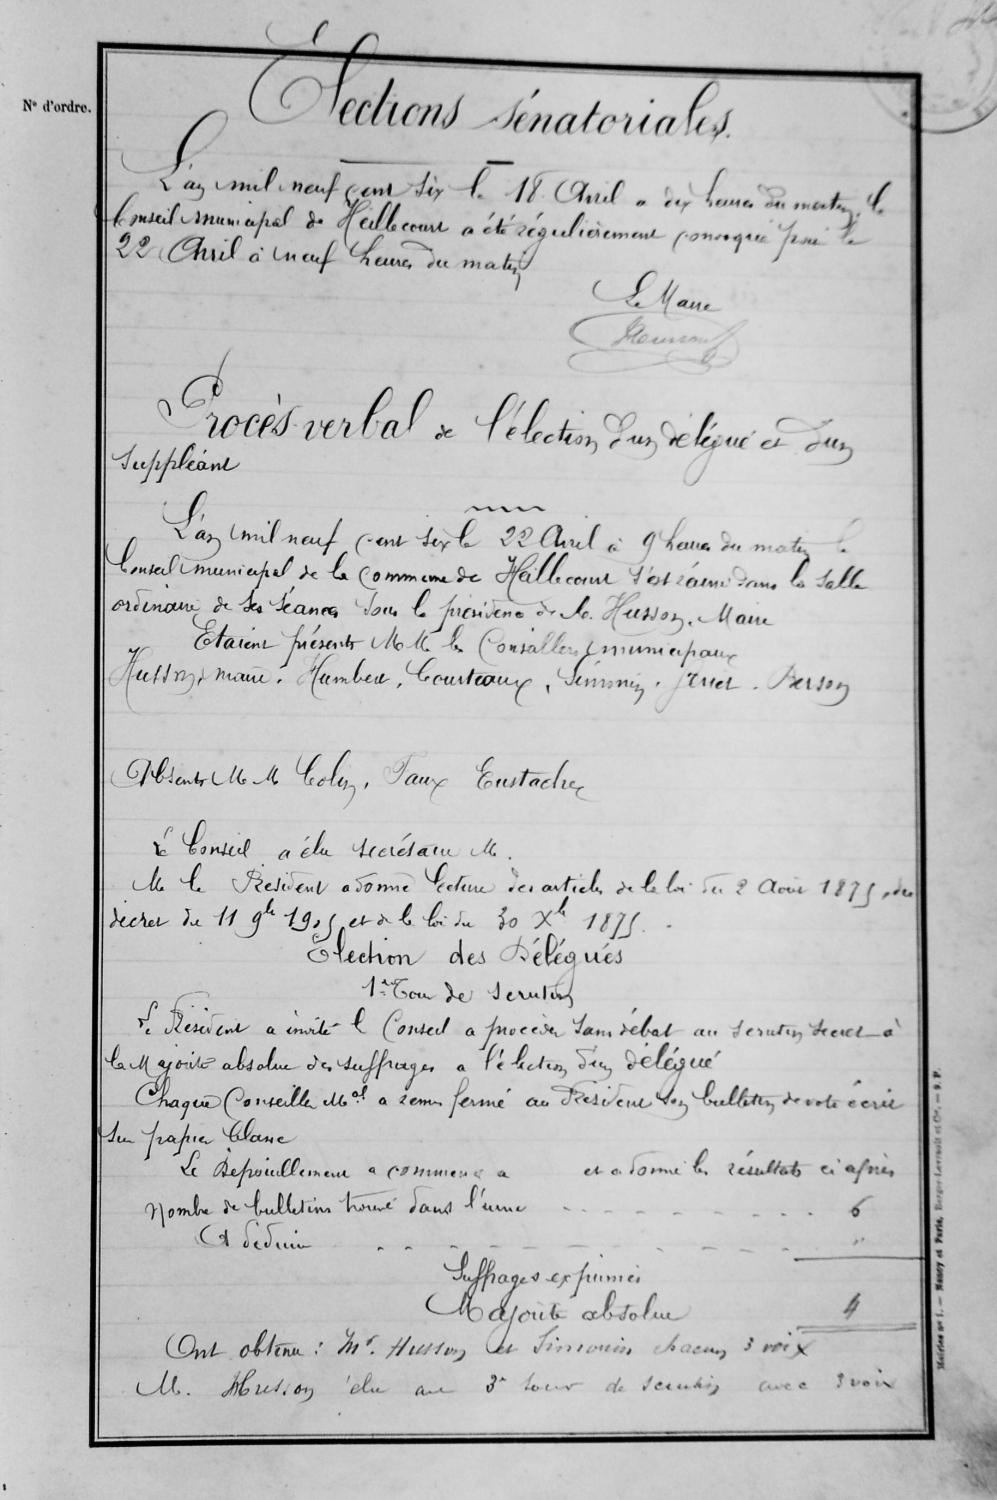 N° d'ordre.
Elections sénatoriales.
L'an mil neuf cent six le 18 Avril a dix heures du matin, le
Conseil municipal de Heillecourt a été régulièrement convoqué pour le
22 Avril à neuf heures du matin
Le Maire
Husson
Procès-verbal de l'élection d'un délégué et d'un
suppléant
L'an mil neuf cent six le 22 Avril à 9 heures du matin le
Conseil municipal de la commune de Heillecourt s'est réuni dans la salle
ordinaire de ses séances sous la présidence de M. Husson, Maire
Etaient présents MM les Conseillers municipaux
Husson, maire, Humbert, Courteaux, Simonin, Berson
Absents MM Colin, Taux Eustache
Le Conseil a élu secrétaire M.
M le Président a donné lecture des articles de la loi du 2 Aout 1875, du
décret du 11 9bre 1905 et de la loi du 30 Xbre 1875.
Election des Délégués
1er Tour de scrutin
Le Président a invité le Conseil a procéder sans débat au scrutin secret à
la Majorité absolue des suffrages a l'élection d'un délégué
Chaque Conseiller Mal a remis fermé au Président son bulletin de vote écrit
sur papier blanc
Le Dépouillement a commencé a et a donné les résultats ci après
Nombre de bulletins trouvé dans l'urne 6
A déduire "
Suffrages exprimés
Majorité absolue 4
Ont obtenu : Mr. Husson et Simonin chacun 3 voix
M. Husson élu au 3e tour de scrutin avec 3 voix
Nancy et Paris, Berger-Levrault et Cie.